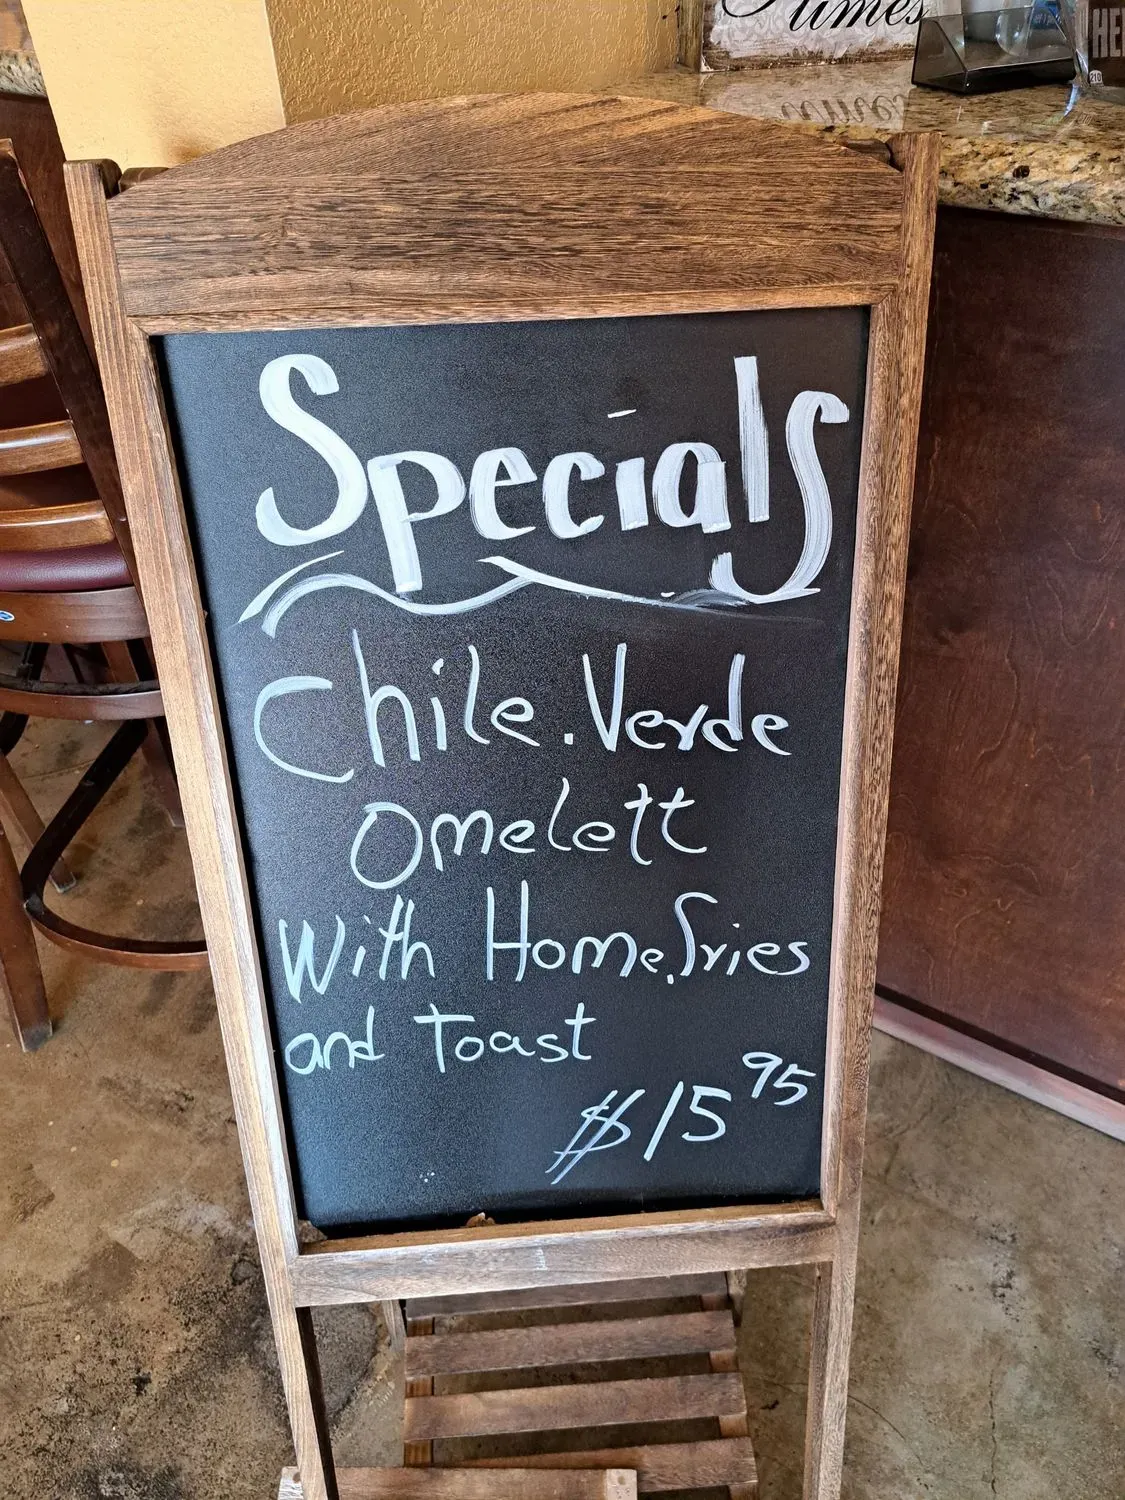 Times
HE
210
Specials
Chile.Verde
omelett
With Home.fries
and Toast
$15 95